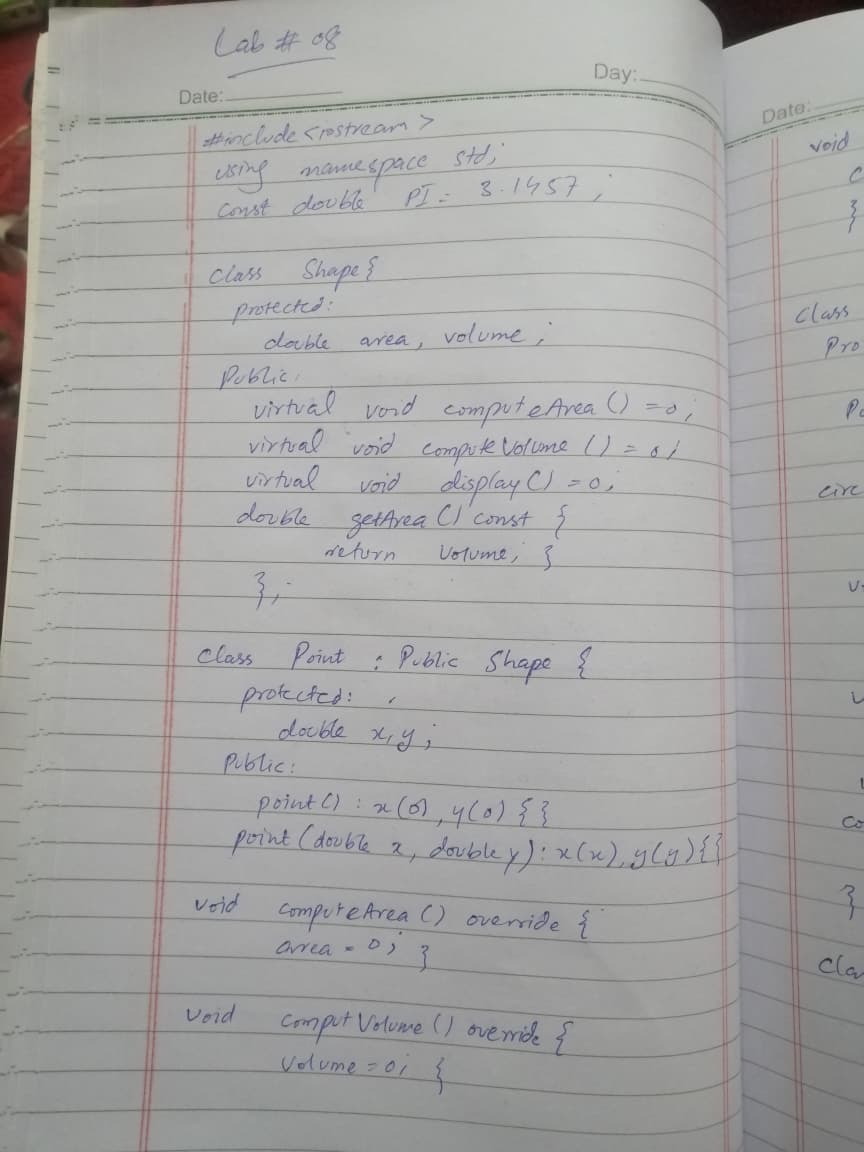 Lab # 08
Day:
Date:
#include <iostream>
using namespace std;
const double PI = 3.1457;
class Shape {
protected:
double area, volume;
Public:
virtual void computeArea () = 0;
virtual void compute Volume () = 0;
virtual void display () = 0;
double getArea () const {
return volume; }
};
class Point : Public Shape {
protected:
double x, y;
Public:
point () : x(0), y(0) { }
point (double x, double y) : x(x), y(y) { {
void computeArea () override {
area = 0; }
void comput Volume () override {
Volume = 0; {
Date:
void
c
}
class
Pro
Pu
circ
co
}
cla